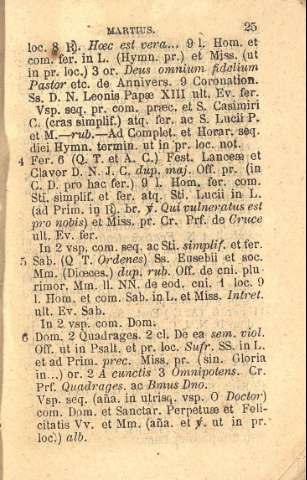 MARTIUS. 25
loc. 8 ℟. Hæc est vera... 9 l. Hom. et
com. fer. in L. (Hymn. pr.) et Miss. (ut
in pr. loc.) 3 or. Deus omnium fidelium
Pastor etc. de Annivers. 9 Coronation.
Ss. D. N. Leonis Papæ XIII ult. Ev. fer.
Vsp. seq. pr. com. præc. et S. Casimiri
C. (cras simplif.) atq. fer. ac S. Lucii P.
et M.—rub.—Ad Complet. et Horar. seq.
diei Hymn. termin. ut in pr. loc. not.
4 Fer. 6 (Q. T. et A. C.) Fest. Lanceæ et
Clavor D. N. J. C. dup. maj. Off. pr. (in
C. D. pro hac fer.) 9 l. Hom. fer. com.
Sti. simplif. et fer. atq. Sti. Lucii in L.
(ad Prim. in ℟. br. ℣. Qui vulneratus est
pro nobis) et Miss. pr. Cr. Prf. de Cruce
ult. Ev. fer.
In 2 vsp. com. seq. ac Sti. simplif. et fer.
5 Sab. (Q T. Ordenes) Ss. Eusebii et soc.
Mm. (Diœces.) dup. rub. Off. de cni. plu-
rimor. Mm. ll. NN. de eod. cni. 1 loc. 9
l. Hom. et com. Sab. in L. et Miss. Intret.
ult. Ev. Sab.
In 2 vsp. com. Dom.
6 Dom. 2 Quadrages. 2 cl. De ea sem. viol.
Off. ut in Psalt. et pr. loc. Sufr. SS. in L.
et ad Prim. prec. Miss. pr. (sin. Gloria
in...) or. 2 A cunctis 3 Omnipotens. Cr.
Prf. Quadrages. ac Bmus Dno.
Vsp. seq. (aña. in utrisq. vsp. O Doctor)
com. Dom. et Sanctar. Perpetuæ et Feli-
citatis Vv. et Mm. (aña. et ℣. ut in pr.
loc.) alb.